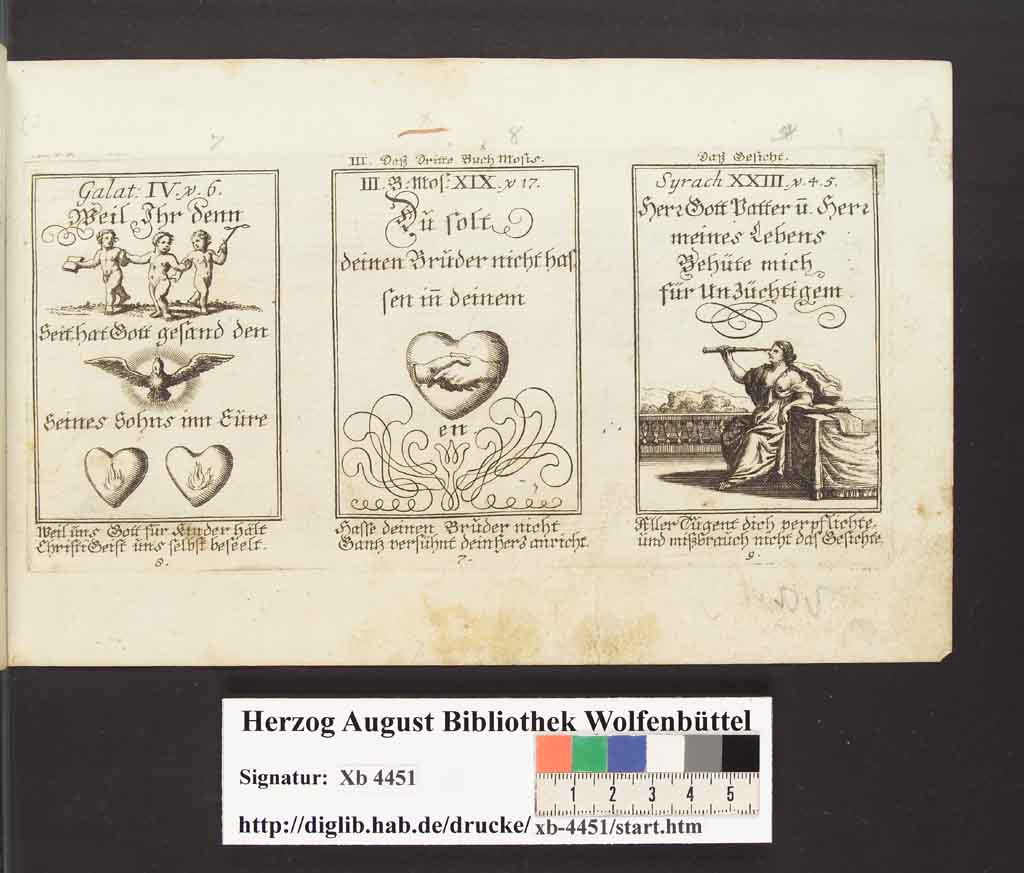 Galat: IV. v. 6.
Weil Ihr denn
Seit. hat Gott gesand den
Seines Sohns inn Eüre
Weil üns Gott für Kinder hält
Christi Geist üns selbst beseelt.
8.
III. Daß Dritte Buch Mosis.
III. B. Mos. XIX. v 17.
Dü solt
deinen Brüder nicht has
sen in̄ deinem
en
Hasse deinen Brüder nicht
Gantz versühnt dein Herz anricht.
7.
Daß Gesicht.
Syrach XXIII. v. 4. 5.
Herr Gott Vatter ū. Herr
meines Lebens
Behüte mich
für Unzüchtigem
Aller Tügent dich verpflichte,
ünd mißbrauch nicht das Gesichte.
9.
Herzog August Bibliothek Wolfenbüttel
Signatur: Xb 4451
1 2 3 4 5
http://diglib.hab.de/drucke/xb-4451/start.htm